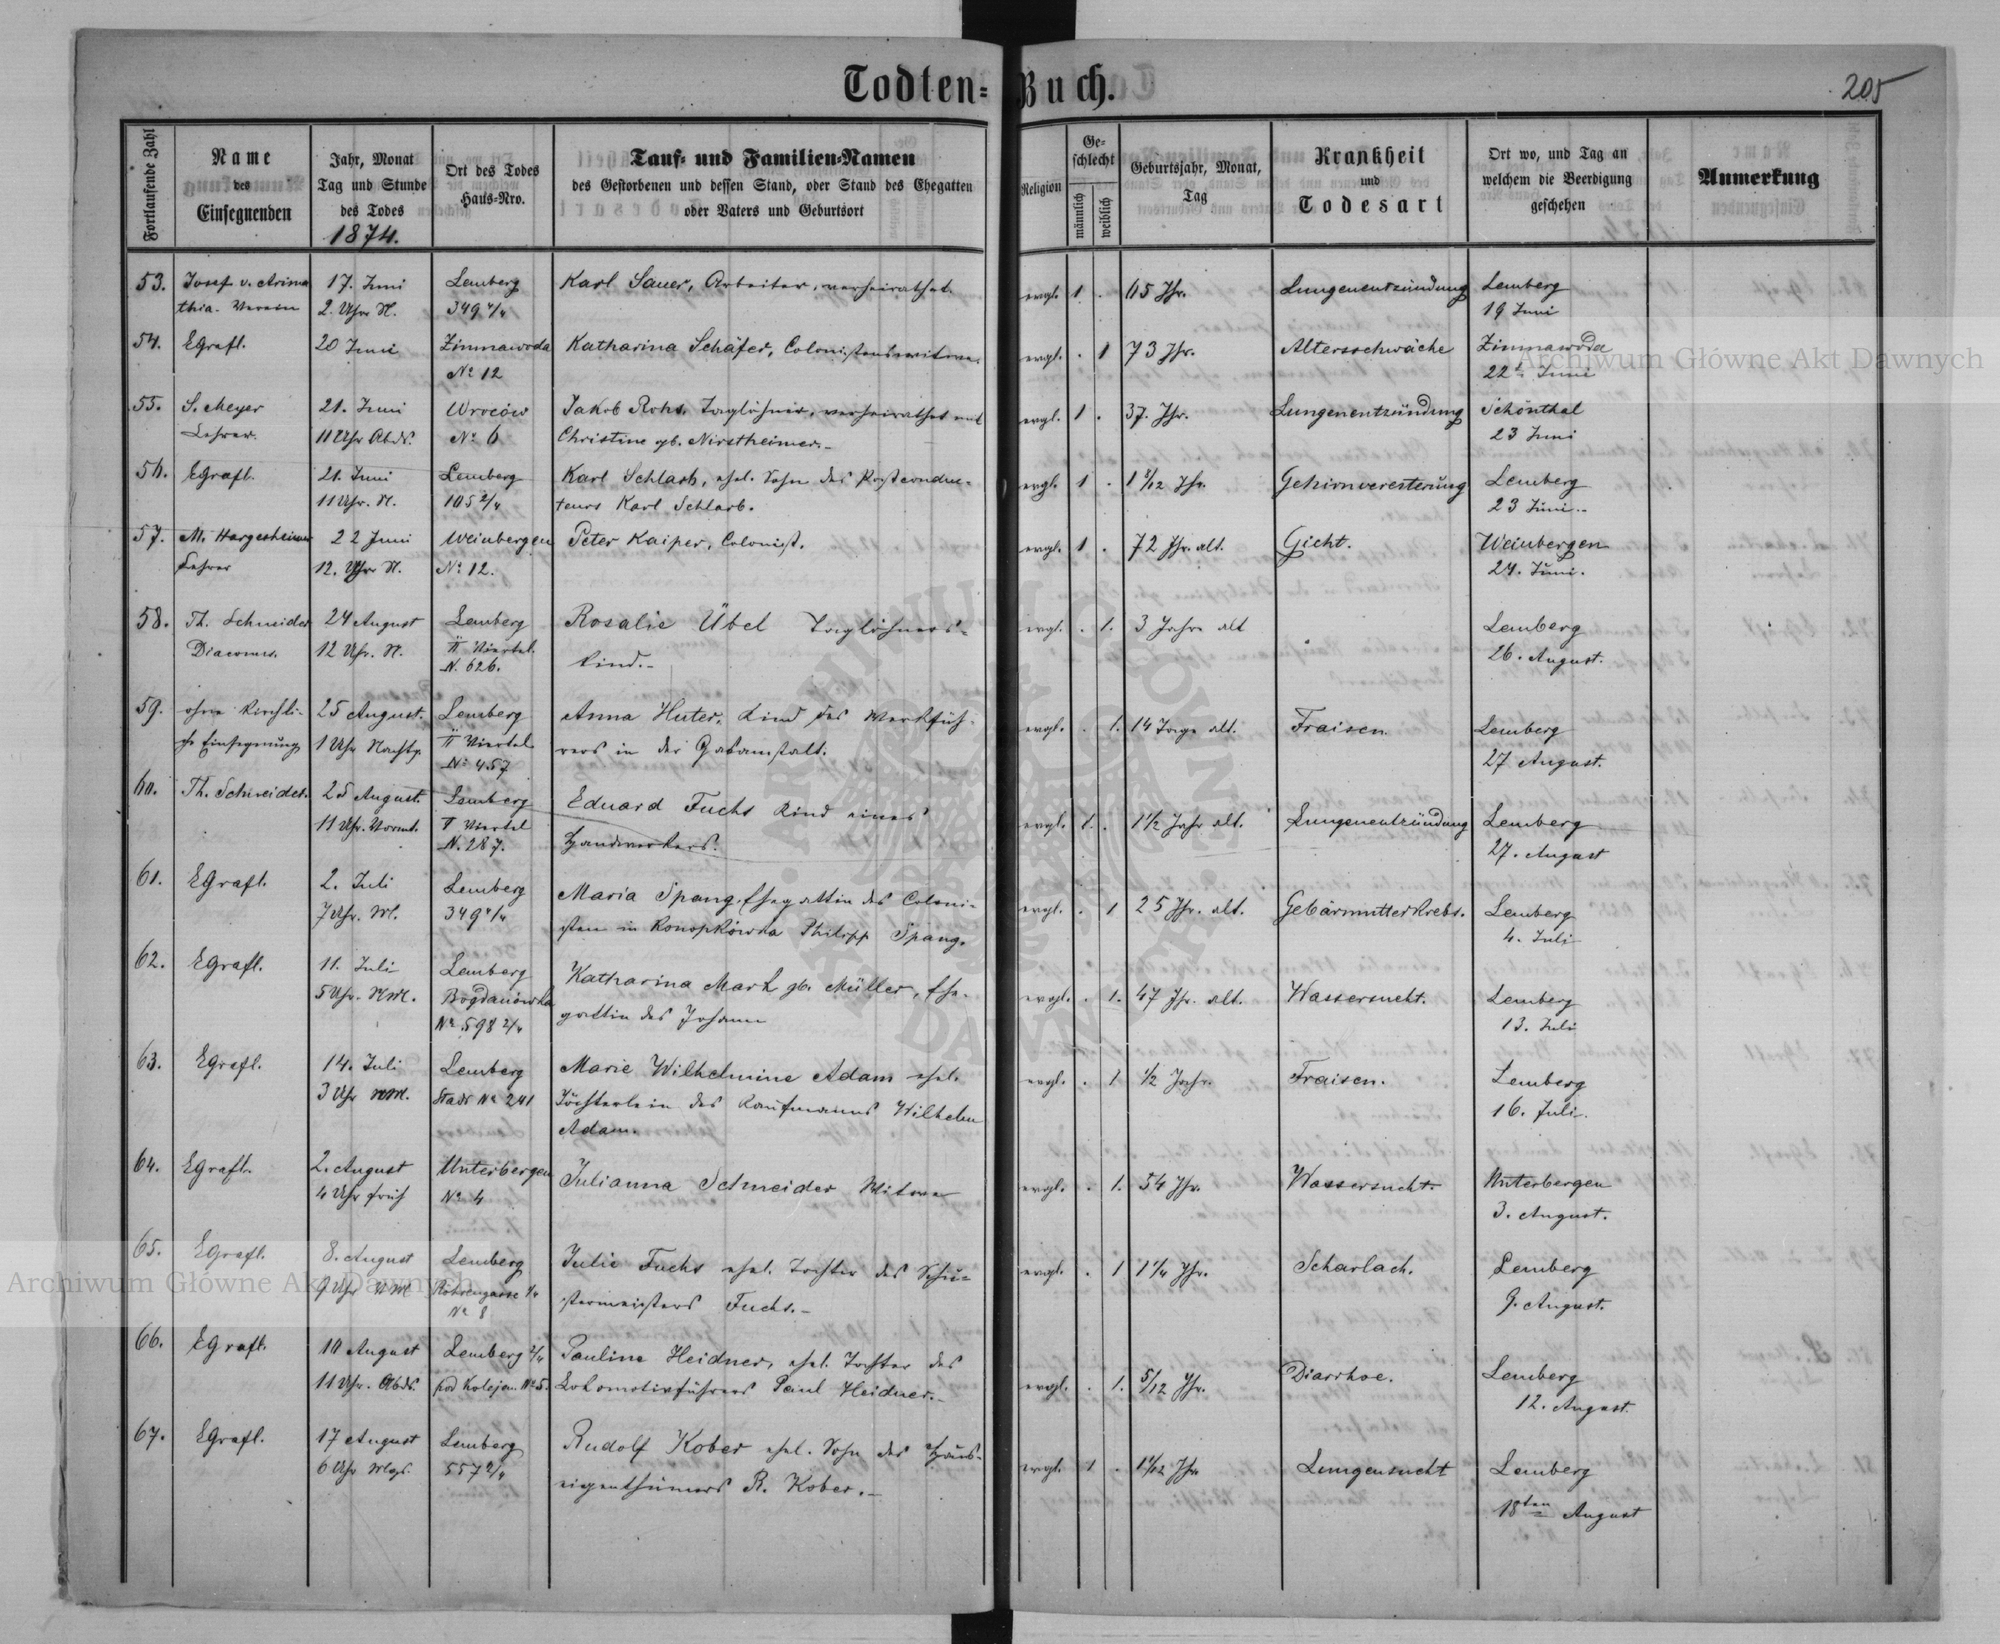 Todten-Buch.
205
Fortlaufende Zahl
Name
des
Einsegnenden
Jahr, Monat
Tag und Stunde
des Todes
1874.
Ort des Todes
Haus-Nro.
Tauf- und Familien-Namen
des Gestorbenen und dessen Stand, oder Stand des Ehegatten
oder Vaters und Geburtsort
Religion
Ge-
schlecht
männlich
weiblich
Geburtsjahr, Monat,
Tag
Krankheit
und
Todesart
Ort wo, und Tag an
welchem die Beerdigung
geschehen
Anmerkung
53. Josef v. Arima 17. Juni Lemberg Karl Sauer, Arbeiter, verheirathet. evgl. 1 . 65 Jhr. Lungenentzündung Lemberg
thia. Verein 2. Uhr N. 349 4/4 19 Juni
54. EGrafl. 20 Juni Zimnawoda Katharina Schäfer, Colonistenswitwe. evgl. . 1 73 Jhr. Altersschwäche Zimnawoda
No 12 22 Juni
55. S. Meyer 21. Juni Wroców Jakob Rohs, Taglöhner, verheirathet mit evgl. 1 . 37. Jhr. Lungenentzündung Schönthal
Lehrer. 11 Uhr Abds. No 6 Christine gb. Nirstheimer.- 23 Juni
56. EGrafl. 21. Juni Lemberg Karl Schlarb, ehel. Sohn des Postconduc- evgl. 1 . Jhr. Gehirnvereiterung Lemberg
11 Uhr. N. 105 2/4 teurs Karl Schlarb. 23 Juni.-
57. M. Hargesheimer 22 Juni Weinbergen Peter Kaiper, Colonist. evgl. 1 . 72 Jhr. alt. Gicht. Weinbergen
Lehrer 12. Uhr N. No 12. 24. Juni.
58. Th. Schneider 24 August Lemberg Rosalie Übel Taglöhners- evgl. . 1. 3 Jahre alt Lemberg
Diaconus. 12 Uhr. N. II Viertel. kind.- 26. August.
N. 626.
59. ohne kirchli- 25 August. Lemberg Anna Huter, Kind des Werkfüh- evgl. . 1. 14 Tage alt. Fraisen. Lemberg
che Einsegnung 1 Uhr Nachtg. II Viertel rers in der Gasanstalt. 27 August.
No 457
60. Th. Schneider. 25 August. Lemberg Eduard Fuchs Kind eines evgl. 1. . 1 1/2 Jahr alt. Lungenentzündung Lemberg
11 Uhr. Vormt. II Viertel Handwerkers. 27. August
N. 287.
61. EGrafl. 2. Juli Lemberg Maria Spang, Ehegattin des Coloni- evgl. . 1 25 Jhr. alt. Gebärmutterkrebs. Lemberg
7 Uhr. M. 349 4/4 sten in Konopkówka Philipp Spang. 4. Juli
62. EGrafl. 11. Juli Lemberg Katharina Mark gb. Müller, Ehe- evgl. . 1. 47 Jhr. alt. Wassersucht. Lemberg
5 Uhr. NM. Bogdanówka gattin des Johann 13. Juli
No 598 2/4
63. EGrafl. 14. Juli Lemberg Marie Wilhelmine Adam ehel. evgl. . 1 1/2 Jahr. Fraisen. Lemberg
3 Uhr NM. Stadt No 241 Töchterlein des Kaufmanns Wilhelm 16. Juli.
Adam.
64. EGrafl. 2. August Unterbergen Julianna Schneider Witwe evgl. . 1. 54 Jhr. Wassersucht. Unterbergen
4 Uhr früh No 4 3. August.
65. EGrafl. 8. August Lemberg Julie Fuchs ehel. Tochter des Schu- evgl. . 1 1 1/4 Jhr. Scharlach. Lemberg
9 Uhr VM Röhrengasse 1/4 stermeisters Fuchs.- 9. August.
No 8
66. EGrafl. 10 August Lemberg 2/4 Pauline Heidner, ehel. Tochter des evgl. . 1. 5/12 Jhr. Diarrhoe. Lemberg
11 Uhr. Abds. pod Kolejom No 5. Lokomotivführers Paul Heidner.- 12. August.
67. EGrafl. 17 August Lemberg Rudolf Kober ehel. Sohn des Haus- evgl. 1 . Jhr Lungensucht Lemberg
6 Uhr Mgs. 557 2/4 eigenthümers R. Kober.- 18ten August
Archiwum Główne Akt Dawnych
Archiwum Główne Akt Dawnych
ARCHIWUM GŁÓWNE AKT DAWNYCH